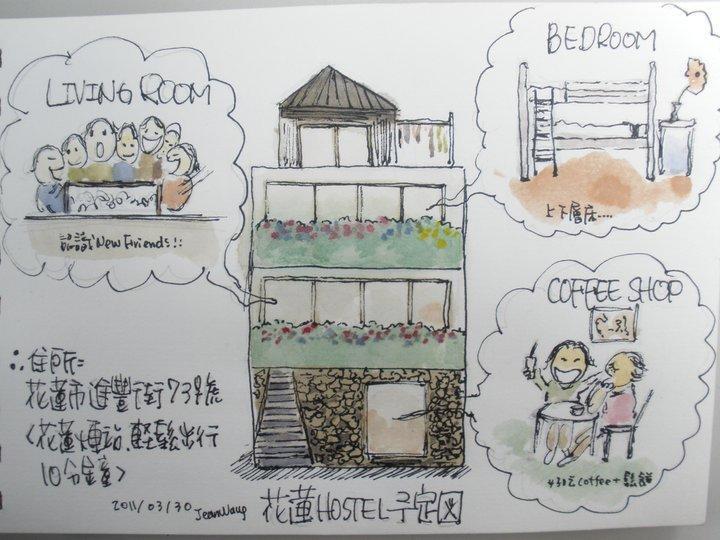 LIVING ROOM
認識 New Friends!!
BEDROOM
上下層床....
COFFEE SHOP
coffee + 鬆餅
∴住所=
花蓮市進豐街73號
<花蓮火車站.輕鬆出行
10分鐘>
2011/03/30 JeanWang
花蓮HOSTEL予定図